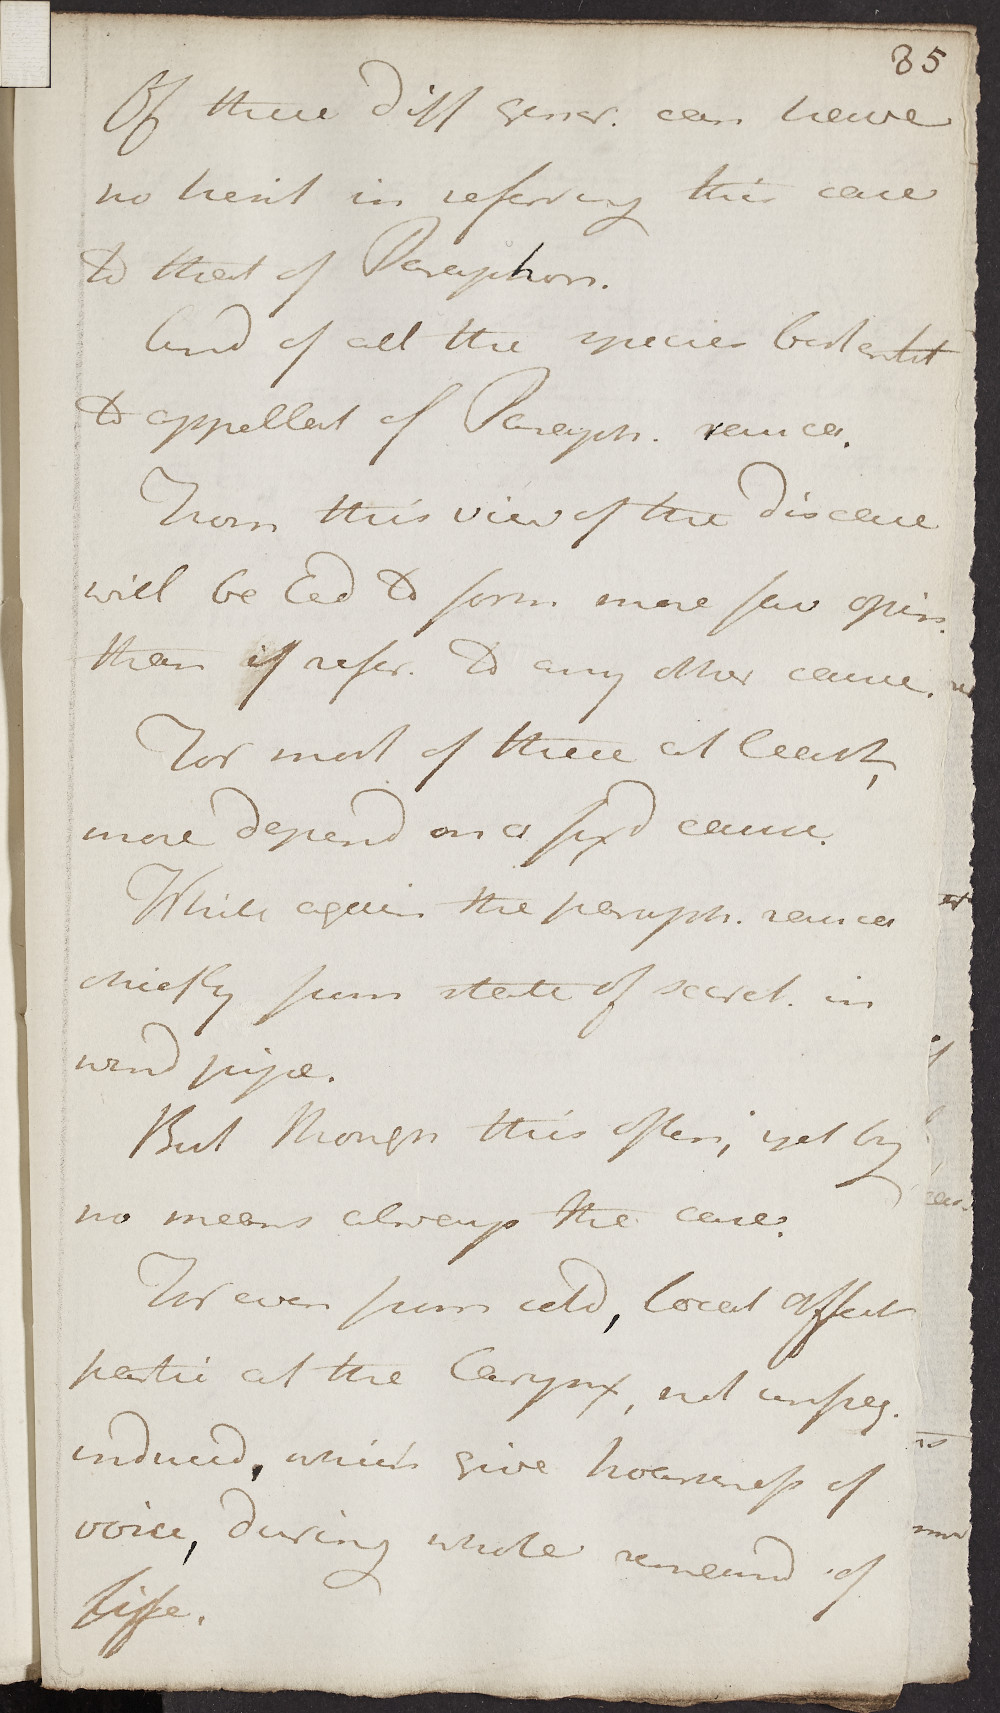 85
Of these diff gener. can have
no hesit in refering this case
to that of Paraphon.
And of all the species best entit
to appellat of Paraph. rauca.
From this view of the disease
will be led to form more fav opin.
than if refer. to any other cause.
For most of these at least,
more depend on a fixd cause.
While again the paraph. rauca
chiefly from state of secret. in
wind pipe.
But though this often, yet by
no means always the case.
For even from cold, local affect
partic at the Larynx, not unfreq.
induced, which give hoarseness of
voice, during whole remaind of
life.